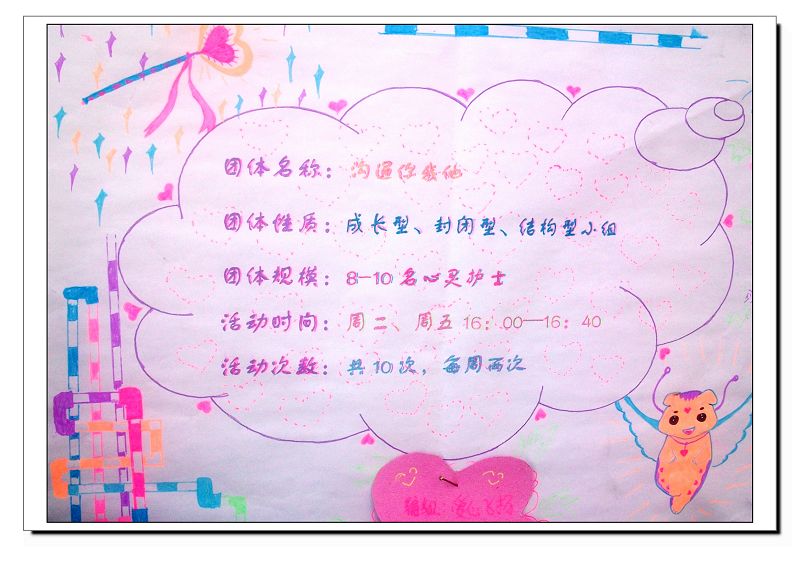 团体名称：沟通你我他
团体性质：成长型、封闭型、结构型小组
团体规模：8-10名心灵护士
活动时间：周二、周五16：00—16：40
活动次数：共10次，每周两次